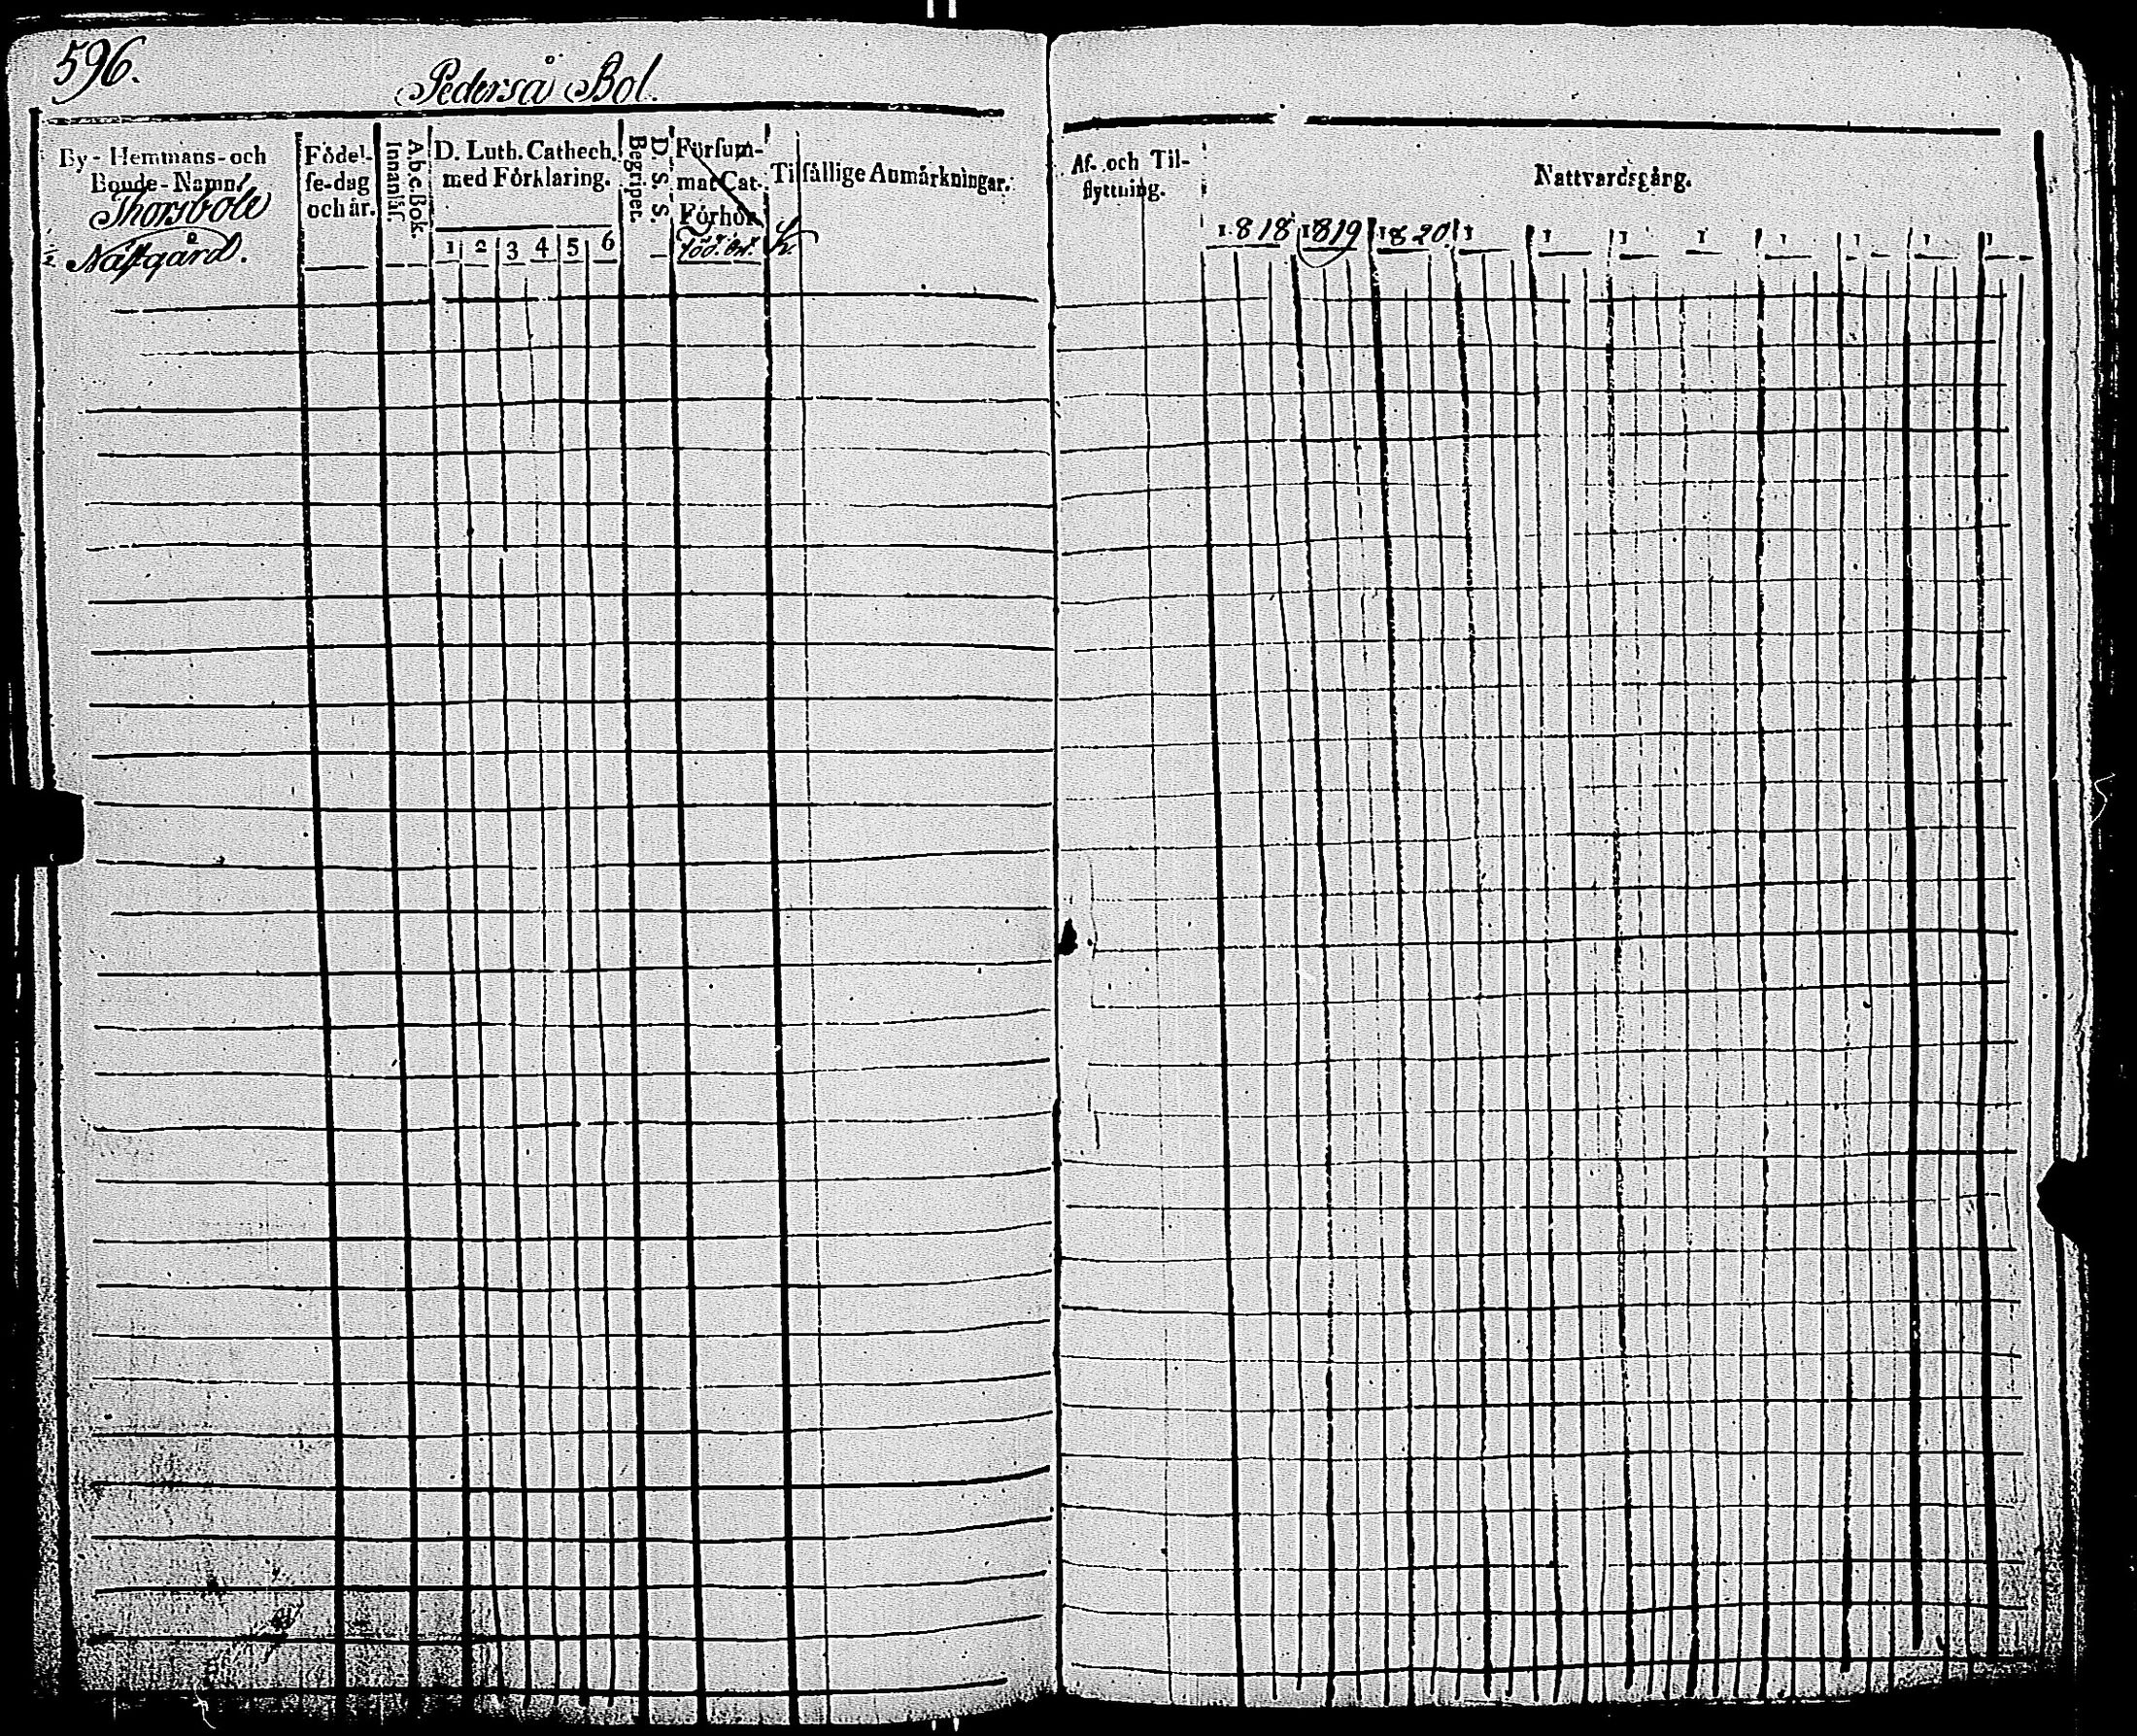 596.
Pederså Bol.
By- Hemmans- och
Bonde-Namn.
Thorsböle
Näsgård.
Födel-
se-dag
och år.
A.b.c. Bok.
Innantil.
D. Luth. Cathech.
med Förklaring.
1 2 3 4 5 6
D. S. S.
Begriper.
Försum-
mat Cat.
Förhör.
Tilfällige Anmärkningar.
Af- och Til-
flyttning.
Nattvardsgång.
1818 1819 1820 1 1 1 1 1 1 1 1